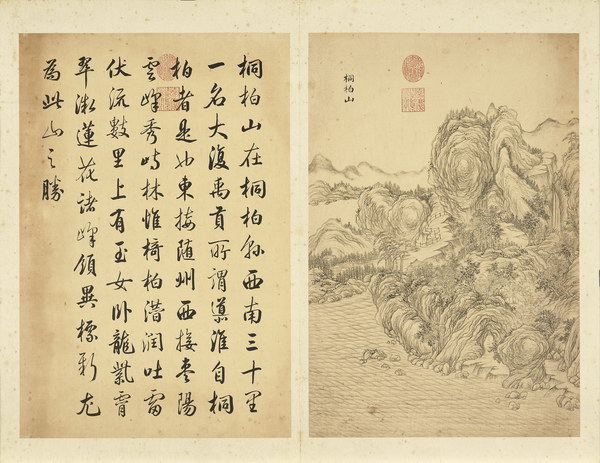 桐柏山在桐柏縣西南三十里
一名大復禹貢所謂導淮自桐
柏者是也東接隨州西接棗陽
雲峰秀峙林惟椅柏潛潤吐雷
伏流數里上有玉女臥龍紫霄
翠微蓮花諸峰領異標新尤
為此山之勝
桐柏山